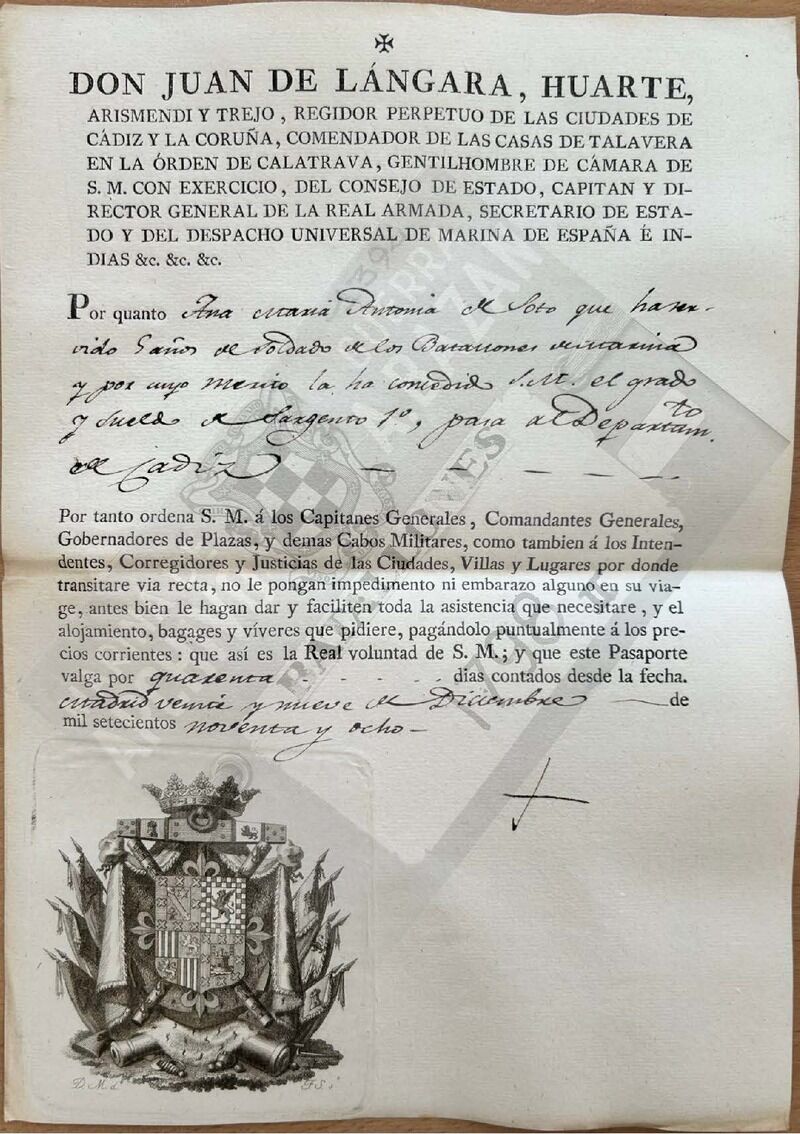 DON JUAN DE LÁNGARA, HUARTE,
ARISMENDI Y TREJO, REGIDOR PERPETUO DE LAS CIUDADES DE
CÁDIZ Y LA CORUÑA, COMENDADOR DE LAS CASAS DE TALAVERA
EN LA ÓRDEN DE CALATRAVA, GENTILHOMBRE DE CÁMARA DE
S. M. CON EXERCICIO, DEL CONSEJO DE ESTADO, CAPITAN Y DI-
RECTOR GENERAL DE LA REAL ARMADA, SECRETARIO DE ESTA-
DO Y DEL DESPACHO UNIVERSAL DE MARINA DE ESPAÑA É IN-
DIAS &c. &c. &c.
Por quanto Ana Maria Antonia de Soto que ha ser-
vido 5 años de soldado de los Batallones de Marina
y por cuyo merito la ha concedido S. M. el grado
y sueldo de Sargento 1º, pasa al Departam.to
de Cadiz
Por tanto ordena S. M. á los Capitanes Generales, Comandantes Generales,
Gobernadores de Plazas, y demas Cabos Militares, como tambien á los Inten-
dentes, Corregidores y Justicias de las Ciudades, Villas y Lugares por donde
transitare via recta, no le pongan impedimento ni embarazo alguno en su via-
ge, antes bien le hagan dar y faciliten toda la asistencia que necesitare, y el
alojamiento, bagages y víveres que pidiere, pagándolo puntualmente á los pre-
cios corrientes: que así es la Real voluntad de S. M.; y que este Pasaporte
valga por quarenta - - - - - dias contados desde la fecha.
Madrid veinte y nueve de Diciembre — de
mil setecientos noventa y ocho -
1798